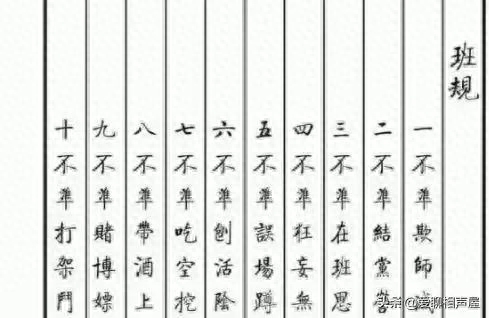 班規
一不準欺師
二不準結黨營
三不準在班思
四不準狂妄無
五不準誤場蹲
六不準刨活陰
七不準吃空挖
八不準帶酒上
九不準賭博嫖
十不準打架鬥
头条 @爱聊相声屋